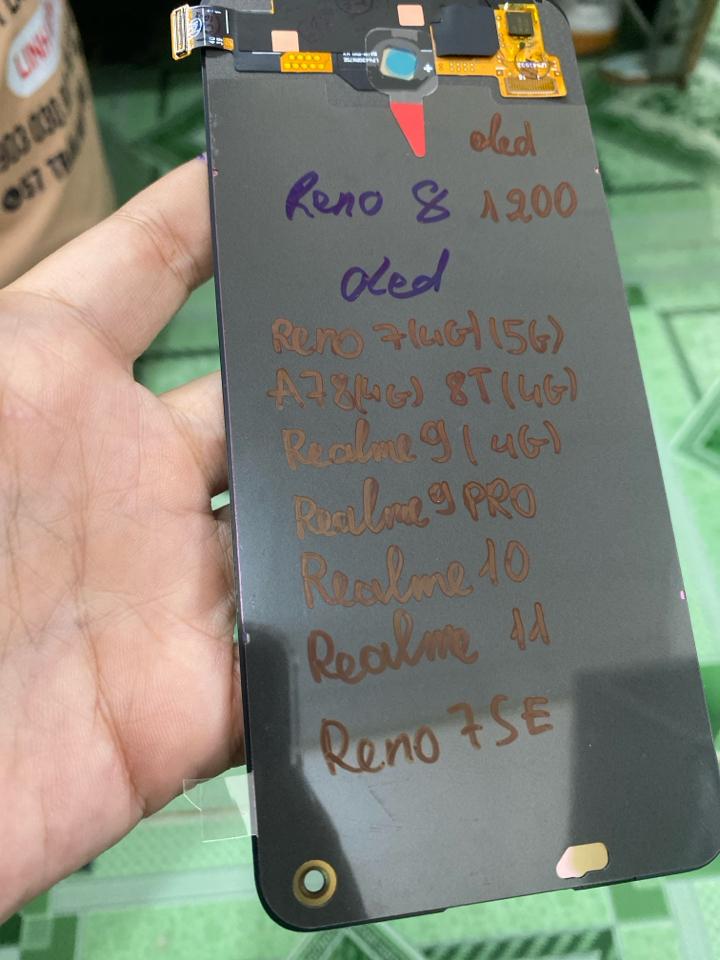 oled
Reno 8 1200
Oled
Reno 7(4G)(5G)
A78(4G) 8T(4G)
Realme 9(4G)
Realme 9 PRO
Realme 10
Realme 11
Reno 7SE